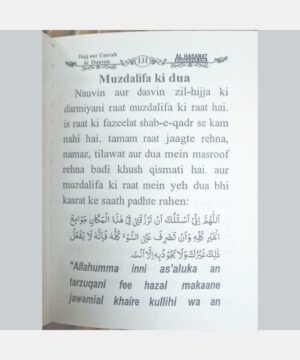 Hajj aur Umrah
ki Duayen
131
AL HASANAT
Muzdalifa ki dua
Nauvin aur dasvin zil-hijja ki
darmiyani raat muzdalifa ki raat hai.
is raat ki fazeelat shab-e-qadr se kam
nahi hai. tamam raat jaagte rehna,
namaz, tilawat aur dua mein masroof
rehna badi khush qismati hai. aur
muzdalifa ki raat mein yeh dua bhi
kasrat ke saath padhte rahen:
اَللّٰهُمَّ اِنِّيْ اَسْئَلُكَ اَنْ تَرْزُقَنِيْ فِيْ هٰذَا الْمَكَانِ جَوَامِعَ
الْخَيْرِ كُلِّهٖ وَاَنْ تَصْرِفَ عَنِّي السُّوْءَ كُلَّهٗ فَاِنَّهٗ لَا يَفْعَلُ
ذٰلِكَ غَيْرُكَ وَلَا يَجُوْدُ بِهٖ اِلَّا اَنْتَ.
"Allahumma inni as'aluka an
tarzuqani fee hazal makaane
jawamial khaire kullihi wa an